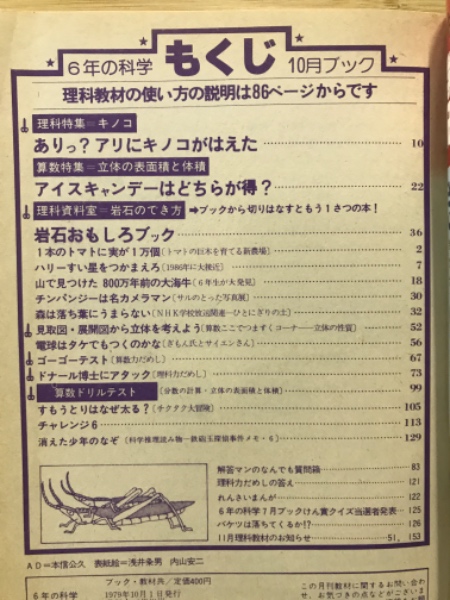 6年の科学 もくじ 10月ブック
理科教材の使い方の説明は86ページからです
理科特集=キノコ
ありっ? アリにキノコがはえた 10
算数特集=立体の表面積と体積
アイスキャンデーはどちらが得? 22
理科資料室=岩石のでき方 ➡ブックから切りはなすともう1さつの本!
岩石おもしろブック 36
1本のトマトに実が1万個(トマトの巨木を育てる新農場) 2
ハリーすい星をつかまえろ(1986年に大接近) 7
山で見つけた 800万年前の大海牛(6年生が大発見) 18
チンパンジーは名カメラマン(サルのとった写真展) 30
森は落ち葉にうまらない(NHK学校放送関連—ひとにぎりの土) 32
見取図・展開図から立体を考えよう(算数ここでつまずくコーナー—立体の性質) 52
電球はタケでもつくのかな(ぎもん氏とサイエンさん) 56
ゴーゴーテスト(算数力だめし) 67
ドナール博士にアタック(理科力だめし) 73
算数ドリルテスト (分数の計算・立体の表面積と体積) 99
すもうとりはなぜ太る?(チクタク大冒険) 105
チャレンジ6 113
消えた少年のなぞ(科学推理読み物—鉄砲玉探偵事件メモ・6) 129
解答マンのなんでも質問箱 83
理科力だめしの答え 121
れんさいまんが 122
6年の科学7月ブックけん賞クイズ当選者発表 125
バケツは落ちてくるか!? 126
11月理科教材のお知らせ 51, 153
AD=本信公久 表紙絵=浅井粂男 内山安二
6年の科学
ブック・教材共/定価400円
1979年10月1日発行
この月刊教材に関するお問い合わ
せ、お気づきの点などがございま